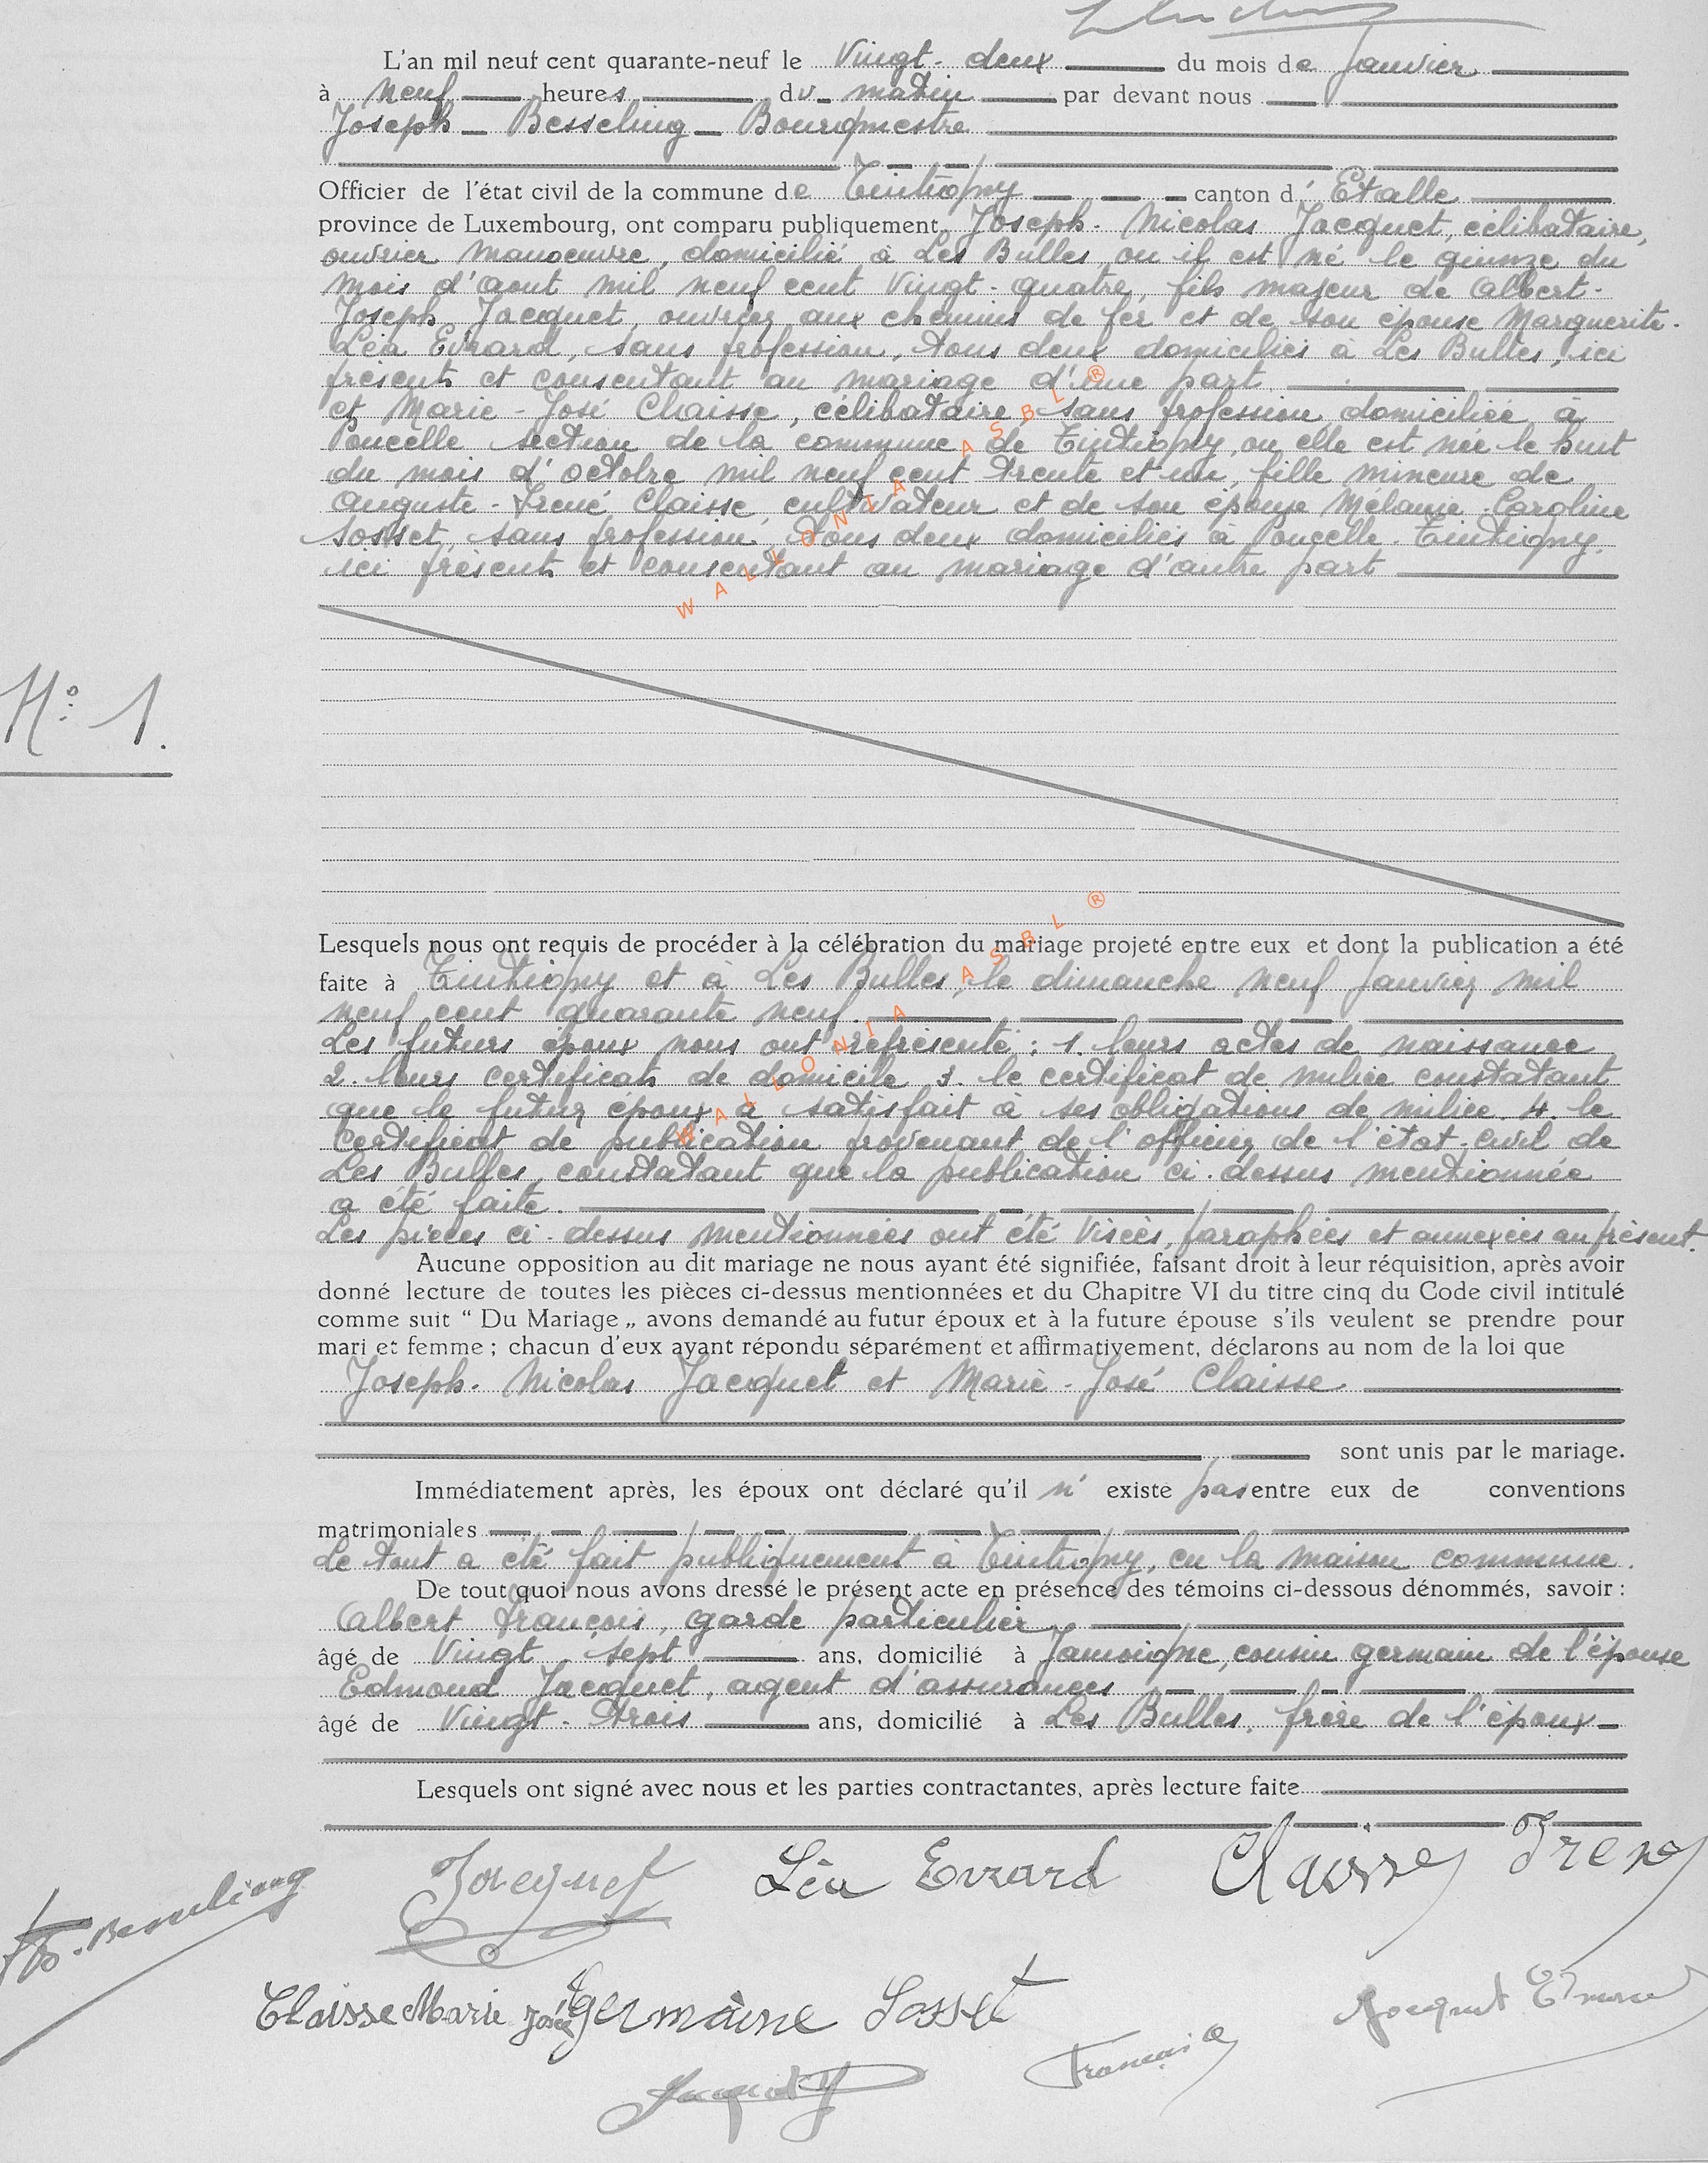 L'an mil neuf cent quarante-neuf le Vingt-deux du mois de Janvier
à neuf heures du matin par devant nous
Joseph - Besseling - Bourgmestre
Officier de l'état civil de la commune de Tintigny canton d' Etalle
province de Luxembourg, ont comparu publiquement Joseph-Nicolas Jacquet, célibataire,
ouvrier manoeuvre, domicilié à Les Bulles, ou il est né le quinze du
mois d'aout mil neuf cent Vingt-quatre, fils majeur de Albert-
Joseph Jacquet, ouvrier aux chemins de fer et de son épouse Marguerite-
Léa Evrard, sans profession, tous deux domiciliés à Les Bulles, ici
présents et consentant au mariage d'une part
et Marie-José Claisse, célibataire sans profession domiciliée à
Poncelle section de la commune de Tintigny, ou elle est née le huit
du mois d'octobre mil neuf cent trente et un, fille mineure de
Auguste-Irené Claisse, cultivateur et de son épouse Mélanie-Caroline
Sosset, sans profession, tous deux domiciliés à Poncelle-Tintigny,
ici présents et consentant au mariage d'autre part
WALLONIA ASBL ®
N° 1.
Lesquels nous ont requis de procéder à la célébration du mariage projeté entre eux et dont la publication a été
faite à Tintigny et à Les Bulles, le dimanche neuf Janvier mil
neuf cent quarante neuf.
Les futurs époux nous ont représenté : 1. leurs actes de naissance
2. leurs certificats de domicile 3. le certificat de milice constatant
que le futur époux a satisfait à ses obligations de milice. 4. le
certificat de publication provenant de l'officier de l'état-civil de
Les Bulles, constatant que la publication ci-dessus mentionnée
a été faite.
Les pièces ci-dessus mentionnées ont été visées, paraphées et annexées au présent.
WALLONIA ASBL ®
Aucune opposition au dit mariage ne nous ayant été signifiée, faisant droit à leur réquisition, après avoir
donné lecture de toutes les pièces ci-dessus mentionnées et du Chapitre VI du titre cinq du Code civil intitulé
comme suit “ Du Mariage „ avons demandé au futur époux et à la future épouse s'ils veulent se prendre pour
mari et femme ; chacun d'eux ayant répondu séparément et affirmativement, déclarons au nom de la loi que
Joseph-Nicolas Jacquet et Marie-José Claisse.
sont unis par le mariage.
Immédiatement après, les époux ont déclaré qu'il n' existe pas entre eux de conventions
matrimoniales
Le tout a été fait publiquement à Tintigny, en la maison commune.
De tout quoi nous avons dressé le présent acte en présence des témoins ci-dessous dénommés, savoir :
Albert François, garde particulier
âgé de Vingt sept ans, domicilié à Jamoigne, cousin germain de l'épouse
Edmond Jacquet, agent d'assurances
âgé de Vingt-trois ans, domicilié à Les Bulles, frère de l'époux
Lesquels ont signé avec nous et les parties contractantes, après lecture faite
Jacquet Léa Evrard Claisse Irené
Besseling
Claisse Marie José Germaine Sosset Jacquet Edmond
Jacquet François